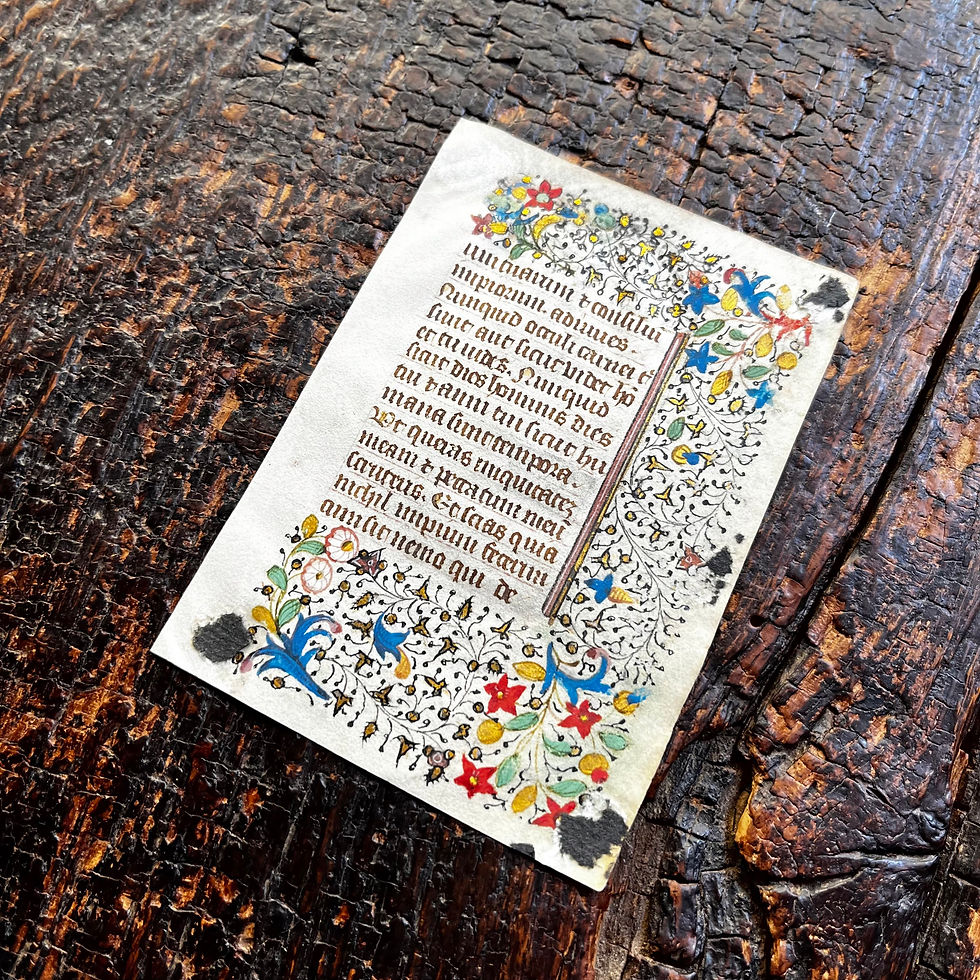 tuarum ⁊ consiliū
impiorum adiuues
Nunquid oculi carnei ti
sunt aut sicut videt ho
et tu vides. Nunquid
sicut dies hominis dies
tui ⁊ anni tui sicut hu
mana sunt tempora.
Ut queras iniquitatē
meam ⁊ peccatum meū
scruteris. Et scias quia
nichil impium fecerim
cum sit nemo qui de